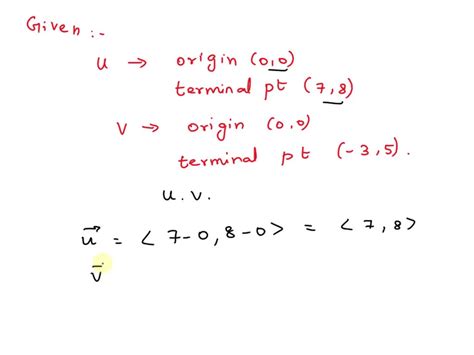 Given :-
u → origin (0,0)
terminal pt (7,8)
v → origin (0,0)
terminal pt (-3,5).
u.v.
u⃗ = < 7-0, 8-0> = < 7,8>
v⃗